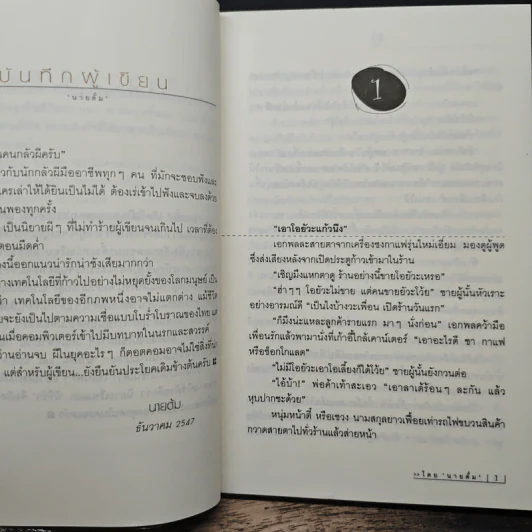 บันทึกผู้เขียน
"นายต้ม"
คนกลัวผีครับ"
วกับนักกลัวผีมืออาชีพทุกๆ คน ที่มักจะชอบฟังและ
ใครเล่าให้ได้ยินเป็นไม่ได้ ต้องเร่เข้าไปฟังและจบลงด้วย
นพองทุกครั้ง
เป็นนิยายผีๆ ที่ไม่ทำร้ายผู้เขียนจนเกินไป เวลาที่ต้อง
ตอนมืดค่ำ
องนี้ออกแนวน่ารักน่าชังเสียมากกว่า
างเทคโนโลยีที่ก้าวไปอย่างไม่หยุดยั้งของโลกมนุษย์ เป็น
ว่า เทคโนโลยีของอีกภพหนึ่งอาจไม่แตกต่าง แม้ชีวิต
จะยังเป็นไปตามความเชื่อแบบโบร่ำโบราณของไทย แต่
นเมื่อคอมพิวเตอร์เข้าไปมีบทบาทในนรกและสวรรค์
อ่านอ่านจบ ผีในยุคอะไรๆ ก็ดอตคอมอาจไม่ใช่สิ่งที่น่า
แต่สำหรับผู้เขียน...ยังยืนยันประโยคเดิมข้างต้นครับ
นายต้ม
ธันวาคม 2547
1
"เอาโอยัวะแก้วนึง"
เอกพลละสายตาจากเครื่องชงกาแฟรุ่นใหม่เอี่ยม มองดูผู้พูด
ซึ่งส่งเสียงหลังจากเปิดประตูก้าวเข้ามาในร้าน
"เชิญมึงแหกตาดู ร้านอย่างนี้ขายโอยัวะเหรอ"
"ฮ่าๆๆ โอยัวะไม่ขาย แต่คนขายยัวะโว้ย" ชายผู้นั้นหัวเราะ
อย่างอารมณ์ดี "เป็นไงบ้างวะเพื่อน เปิดร้านวันแรก"
"ก็มึงน่ะแหละลูกค้ารายแรก มาๆ นั่งก่อน" เอกพลคว้ามือ
เพื่อนรักแล้วพามานั่งที่เก้าอี้ใกล้เคาน์เตอร์ "เอาอะไรดี ชา กาแฟ
หรือช็อกโกแลต"
"ไม่มีโอยัวะเอาโอเลี้ยงก็ได้โว้ย" ชายผู้นั้นยังกวนต่อ
"ไอ้บ้า!" พ่อค้าเท้าสะเอว "เอาลาเต้ร้อนๆ ละกัน แล้ว
หุบปากซะด้วย"
หนุ่มหน้าตี๋ หรือเชวง นามสกุลยาวเฟื้อยเท่ารถไฟขบวนสินค้า
กวาดสายตาไปทั่วร้านแล้วส่ายหน้า
»» โดย "นายต้ม" | 7